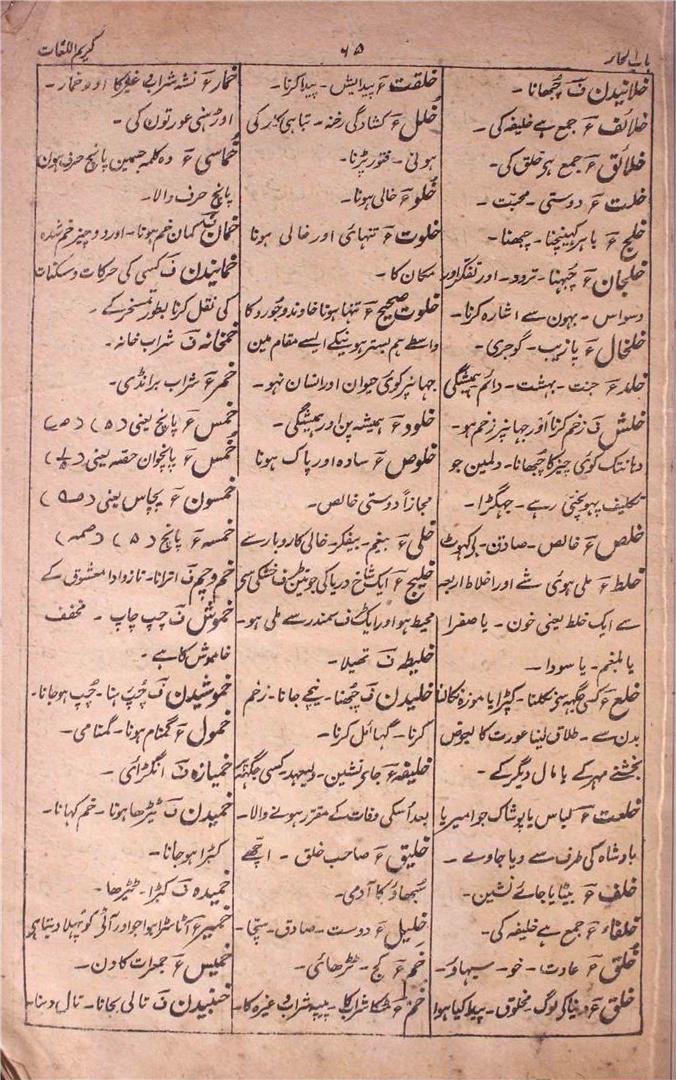 باب الخاء
۶۵
کریم اللغات
خلانیدن ف چُبھانا -
خلائف ع جمع ہے خلیفہ کی -
خلائق ع جمع ہے خلق کی -
خلت ع دوستی - محبّت -
خلج ع باہر کھینچنا - چھینا -
خلجان ع چُبہنا - تردد - اور تفکّر اور
وسواس - بہون سے اشارہ کرنا -
خلخال ع پازیب - گوجری -
خلد ع جنت - بہشت - دائم ہمیشگی
خلش ف زخم کرنا اور جہانپر زخم ہو -
وہانتک کوئی چیز کا چُبھانا - دلمین جو
تکلیف پہونچتی رہے - جہگڑا -
خلص ع خالص - صادق -
خلط ع ملی ہوئی شے اور اخلاط اربعہ
سے ایک خلط یعنی خون - یا صفرا
یا بلغم - یا سودا -
خلع ع کسی جگہہ سے نکلنا - کپڑا یا موزہ نکالنا
بدن سے - طلاق لینا عورت کا بعوض
بخشنے مہر کے یا مال دیگر کے -
خلعت ع لباس یا پوشاک جو امیر یا
بادشاہ کی طرف سے دیا جاوے -
خلف ع بیٹا یا جائے نشین -
خلفاء ع جمع ہے خلیفہ کی -
خُلق ع عادت - خو - سبہاؤ -
خلق ع دنیا کی لوگ - مخلوق - پیدا کیا ہوا
خلقت ع پیدایش - پیدا کرنا -
خلل ع کشادگی رخنہ - تباہی کار کی
ہونی - فتور پڑنا -
خُلو ع خالی ہونا -
خلوت ع تنہائی اور خالی ہونا
مکان کا -
خلوت صحیح ع تنہا ہونا خاوند و جورد کا
واسطے ہم بستر ہونیکے ایسے مقام مین
جہانپر کوئی حیوان اور انسان نہو -
خلود ع ہمیشہ پن اور ہمیشگی -
خلوص ع سادہ اور پاک ہونا
مجازاً دوستی خالص -
خلی ع بیغم - بیفکر - خالی کاروبار سے
خلیج ع ایک شاخ دریا کی جو تین طرف خشکی سے
محیط ہو اور ایک طرف سمندر سے ملی ہو -
خلیطہ ف تھیلا -
خلیدن ف چُبھنا - نیچے جانا - زخم
کرنا - گہائل کرنا -
خلیفہ ع جائے نشین - ولیعہد - کسی جگہہ
بعد اُسکی وفات کے مقرر ہونے والا -
خلیق ع صاحب خلق - اچھے
سُبھاؤ کا آدمی -
خلیل ع دوست - صادق - سچّا -
خم ع کج - ٹیڑھائی -
خُم ع مٹکا شراب کا - پیپہ شراب وغیرہ کا -
خمار ع نشہ شراب وغیرہ کا اور خمار -
اوڑھنی عورتون کی -
خُماسی ع وہ کلمہ جسمین پانچ حرف ہون
پانچ حرف والا -
خمان ف کمان خم ہونا - اور دو چیز خم شدہ
خمانیدن ف کسی کی حرکات و سکنات
کی نقل کرنا بطور تمسخر کے -
خمخانہ ف شراب خانہ -
خمر ع شراب برانڈی -
خمس ع پانچ یعنی (۵)
خُمس ع پانچوان حصہ یعنی (۱/۵)
خمسون ع پچاس یعنی
خمسہ ع پانچ (۵)
خم و چم ف اترانا - ناز و ادا معشوق کے
خموش ف چپ چاپ - مخفف
خاموش کا ہے -
خموشیدن ف چُپ رہنا - چُپ ہو جانا -
خمول ع گمنام ہونا - گمنامی -
خمیازہ ف انگڑائی -
خمیدن ف ٹیڑھا ہونا - خم کہانا -
کبڑا ہو جانا -
خمیدہ ف کبڑا - ٹیڑھا -
خمیر ع آٹا سڑا ہوا جو اور آٹی کو پہلا دیتا ہی
خمیس ع جمعرات کا دن -
خنبیدن ف تالی بجانا - تال دینا -